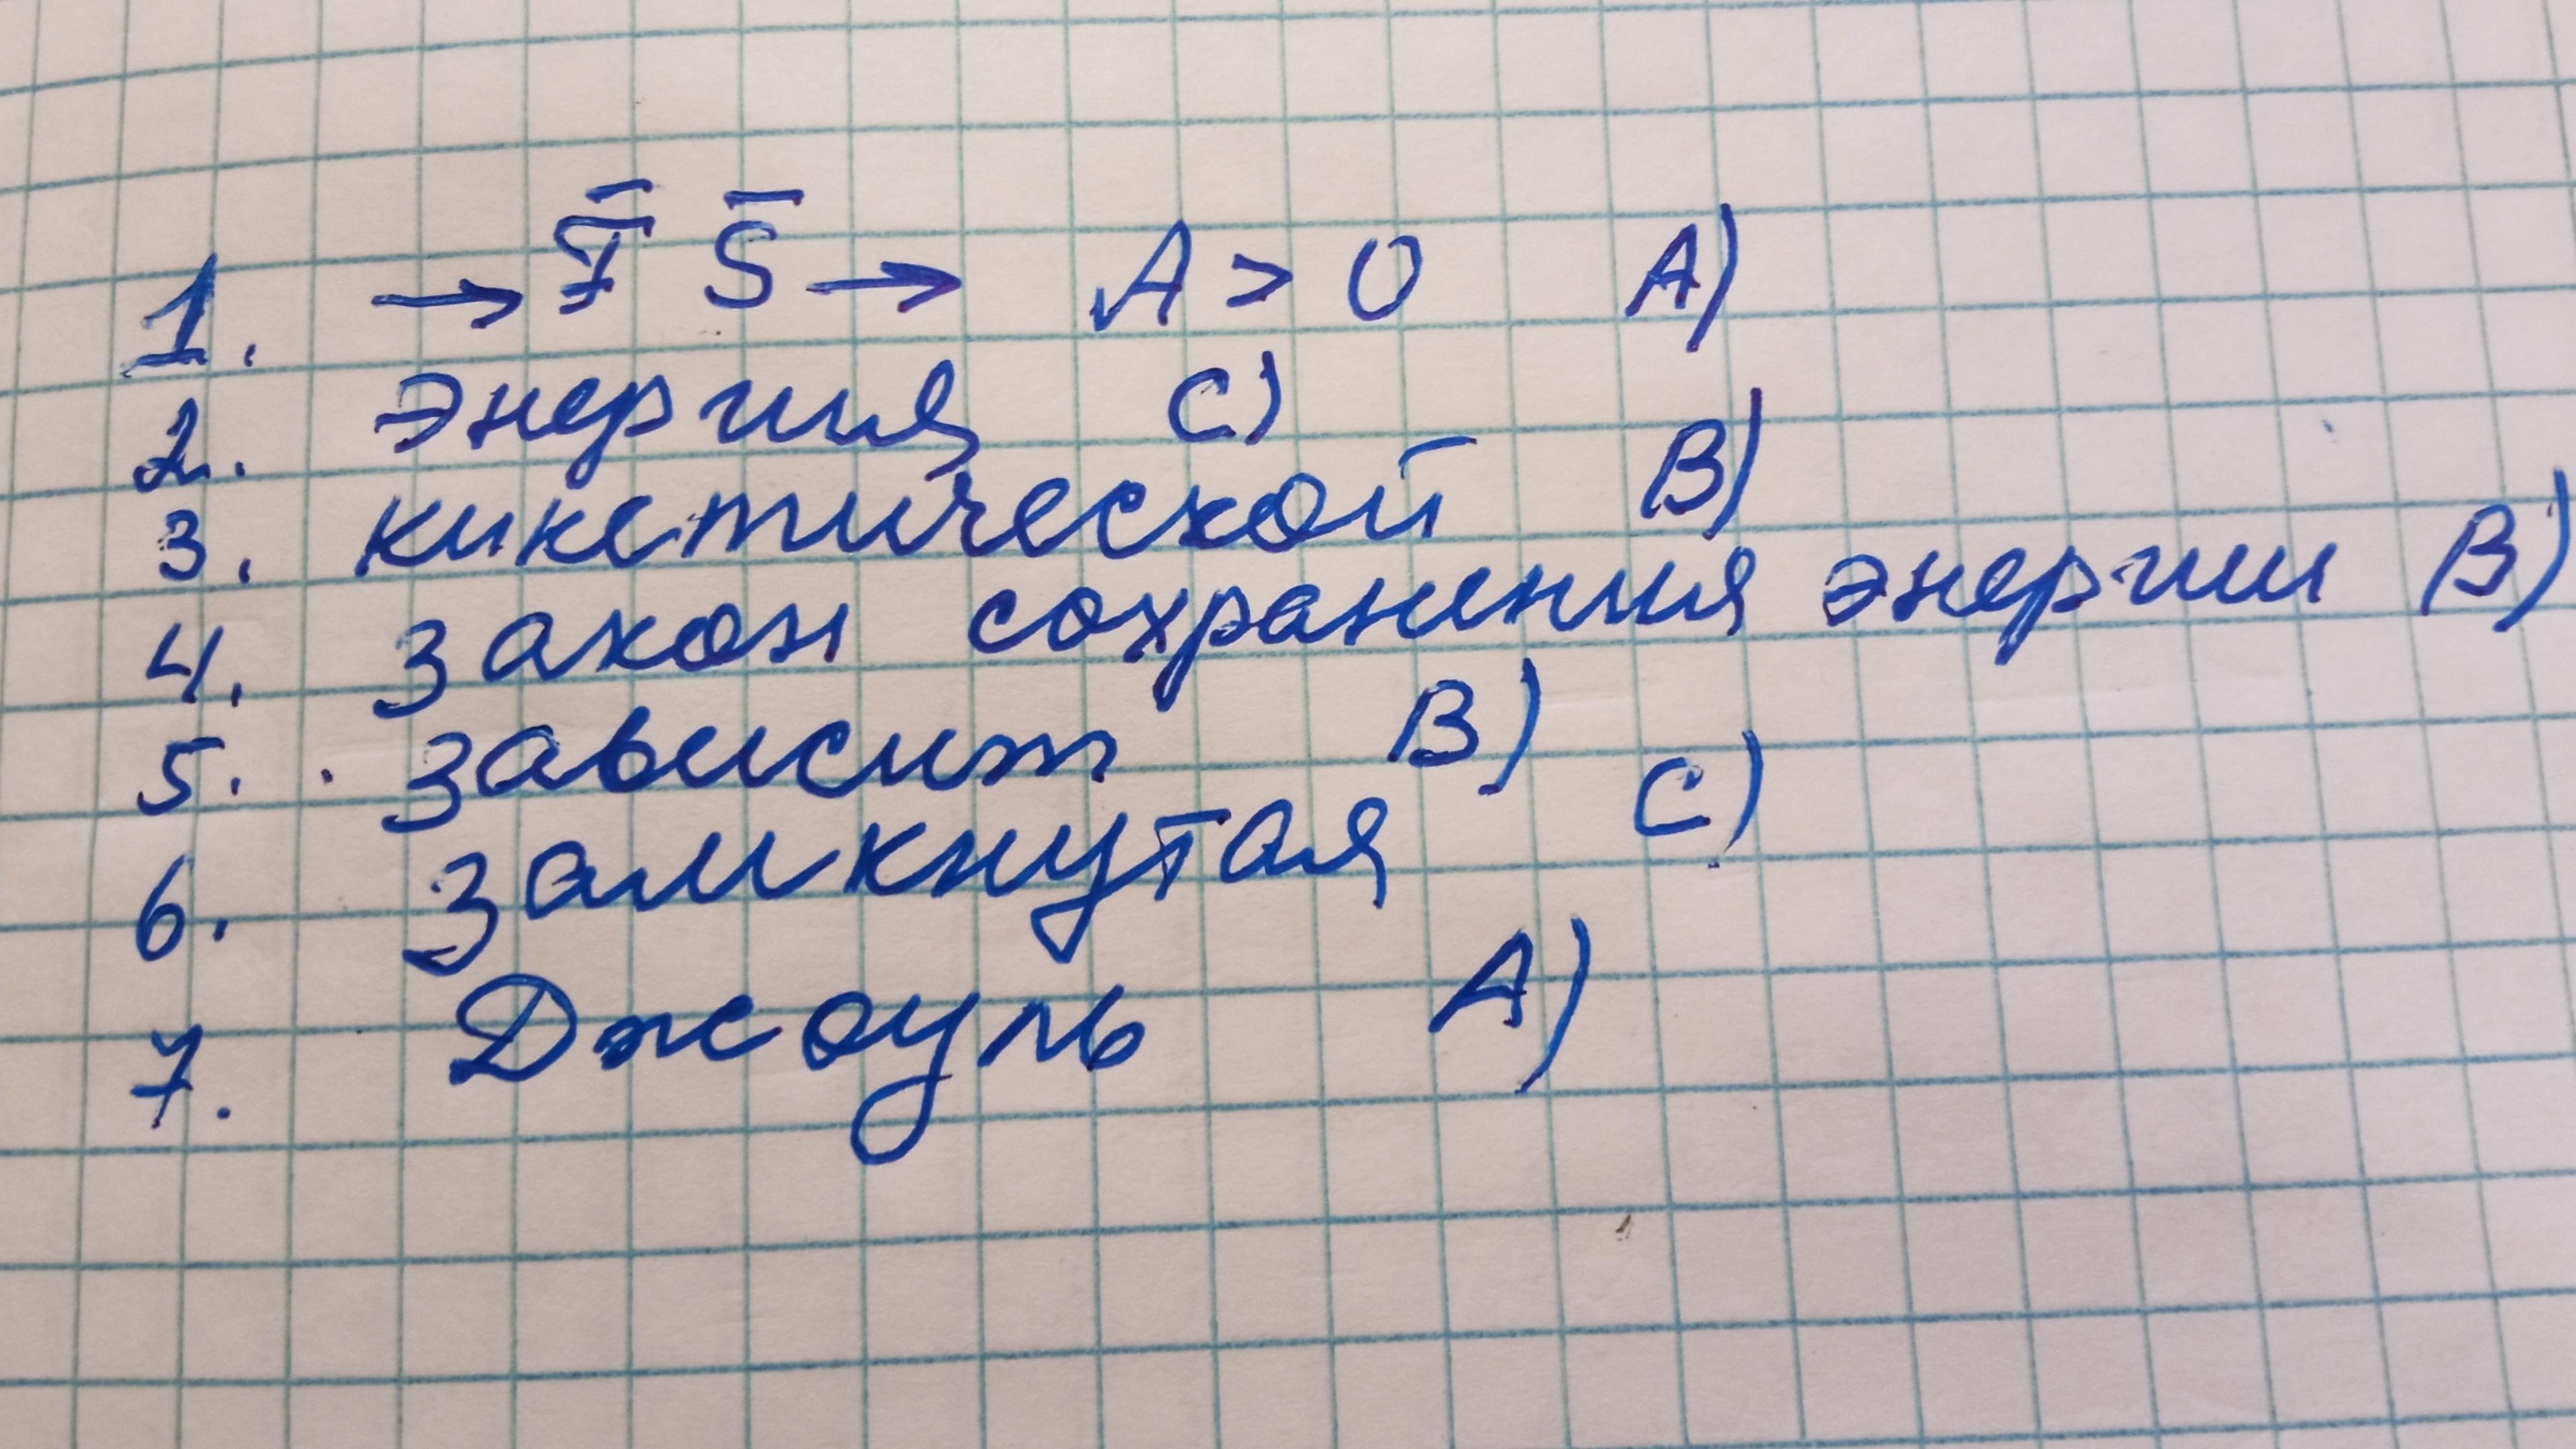 1. → F̄ S̄ → A > 0 A)
2. энергия C)
3. кинетической B)
4. закон сохранения энергии B)
5. зависит B)
6. замкнутая C)
7. Джоуль A)